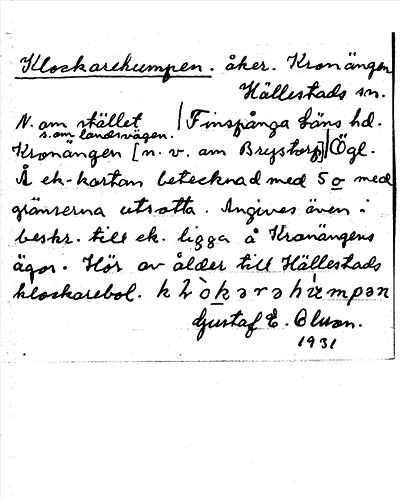 Klockarekumpen. åker. Kronängen
Hällestads sn.
N. om stället Finspånga Läns hd.
s.om landsvägen.
Kronängen [n. v. om Brystorp] Ögl.
Å ek-kartan betecknad med 5 o med
gränserna utsatta. Angives även i
beskr. till ek. ligga å Kronängens
ägor. Hör av ålder till Hällestads
klockarebol.
Gustaf E. Olsson.
1931